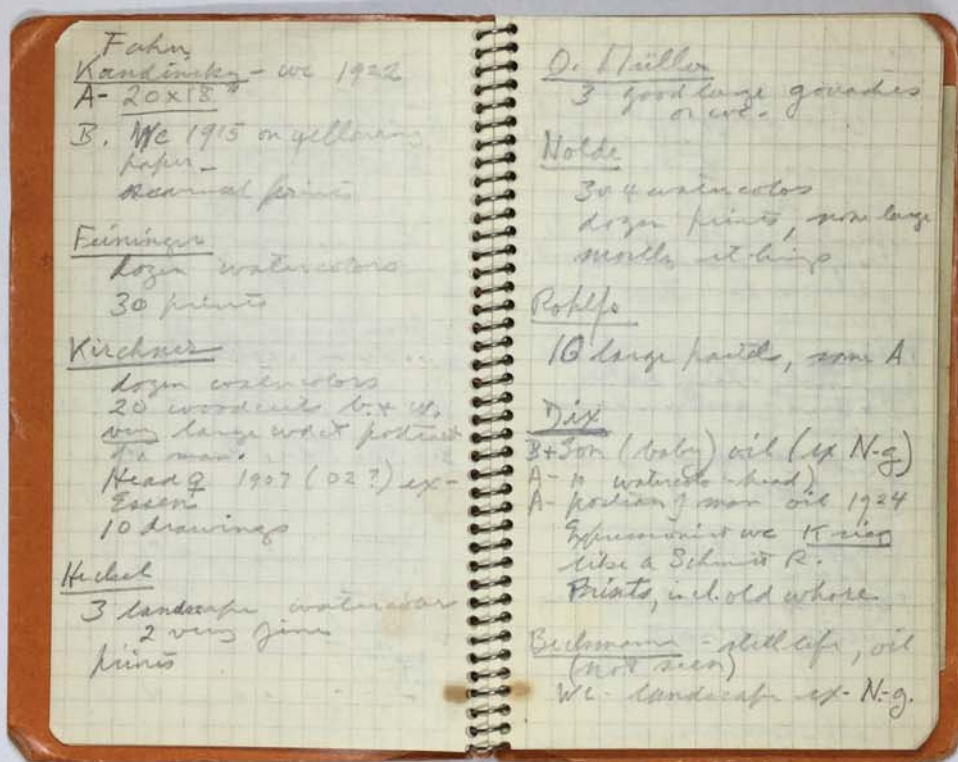 Fohn
Kandinsky - wc 1922
A- 20x18"
B. Wc 1915 on yellowing
paper -
several prints
Feininger
dozen watercolors
30 prints
Kirchner
dozen watercolors
20 woodcuts b. + w.
very large wdct portrait
of a man.
Head ♀ 1907 (02?) ex-
Essen
10 drawings
Heckel
3 landscape watercolors
2 very fine
prints
O. Müller
3 good large gouaches
or wc.
Nolde
3 or 4 watercolors
dozen prints, none large
mostly etchings
Rohlfs
10 large pastels, some A
Dix
B+ Son (baby) oil (ex N-g)
A- watercolor head)
A- portrait of man oil 1924
Expressionist wc Krieg
like a Schmidt R.
Prints, incl. old whore
Beckmann - still life, oil
(not seen)
Wc - landscape ex- N-g.